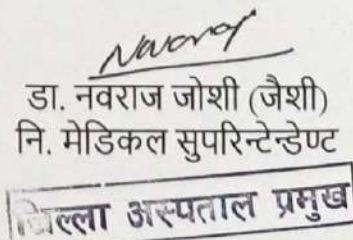 डा. नवराज जोशी (जैशी)
नि. मेडिकल सुपरिन्टेन्डेण्ट
जिल्ला अस्पताल प्रमुख